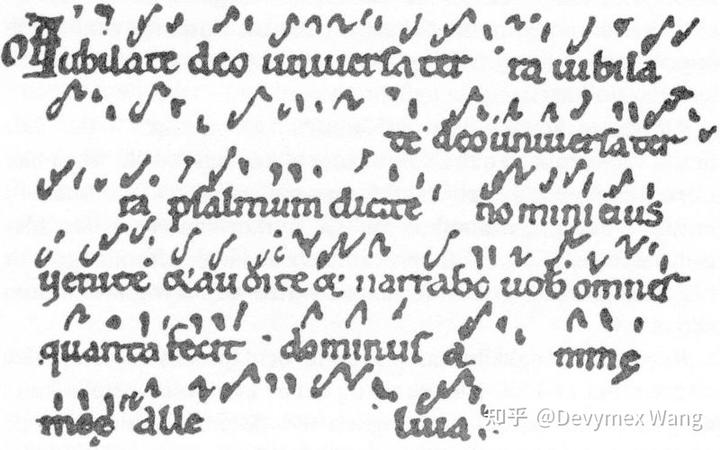 Iubilate deo uniuersa ter ra iubila
te deo uniuersa ter
ra psalmum dicite nomini eius
uenite & audite & narrabo uob omnes
quanta fecit dominus a nime
meę alle luia.
知乎 @Devymex Wang